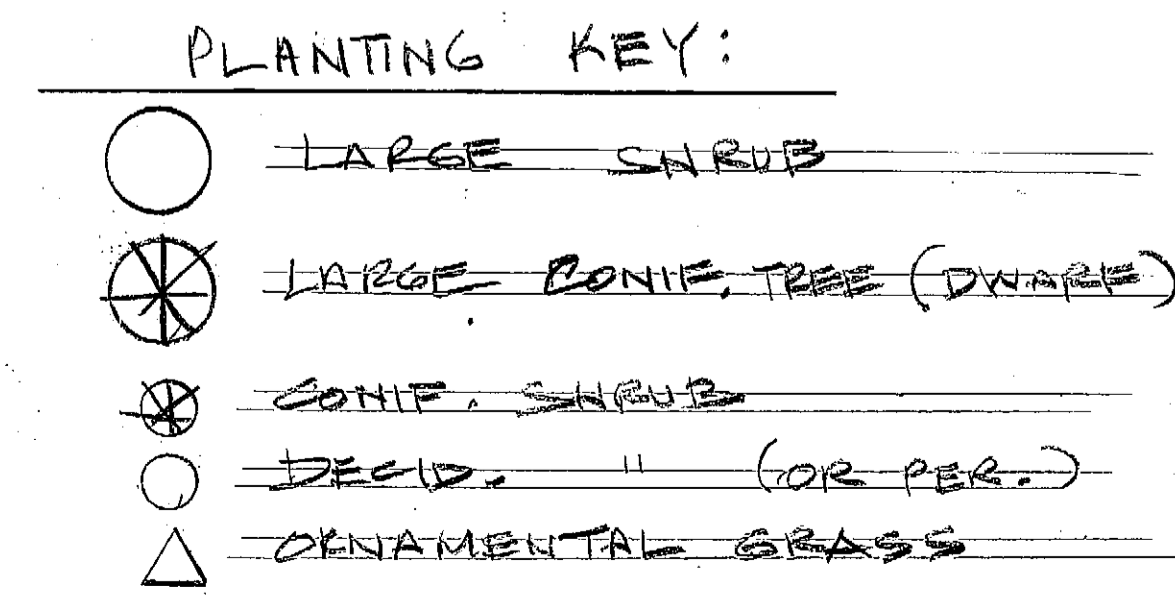 PLANTING KEY:
LARGE SHRUB
LARGE CONIF. TREE (DWARF)
CONIF. SHRUB
DECID. " (OR PER.)
ORNAMENTAL GRASS